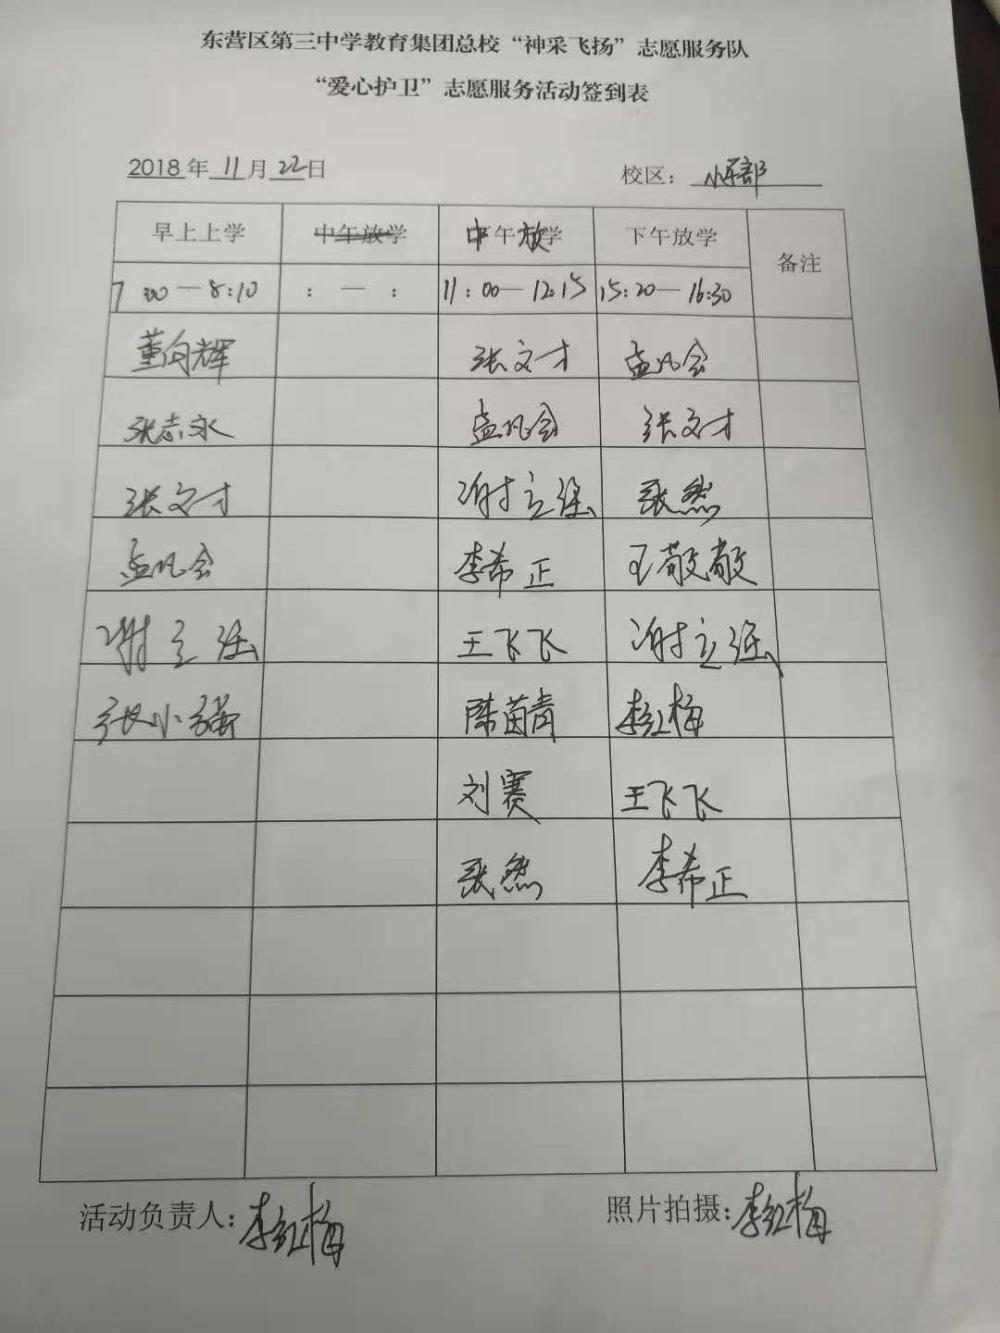 东营区第三中学教育集团总校“神采飞扬”志愿服务队
“爱心护卫”志愿服务活动签到表
2018年 11月 22日 校区：小学部
早上上学 中午放学 中午放学 下午放学 备注
7:00—8:10 : — : 11:00—12:15 15:20—16:30
董向辉 张文才 孟凡会
张志永 孟凡会 张文才
张文才 谢立强 张然
孟凡会 李希正 王敬敬
谢立强 王飞飞 谢立强
张小强 陈茵青 李红梅
刘赛 王飞飞
张然 李希正
活动负责人：李红梅 照片拍摄：李红梅